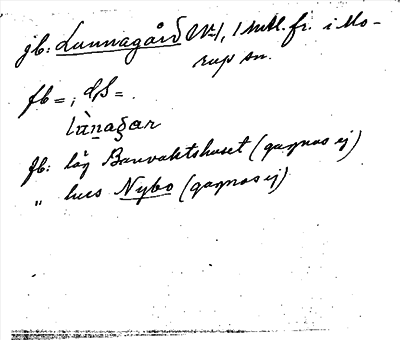 jb: Lunnagård No 1, 1 mtl. fr. i Mo-
rup sn.
fb = ; dS = .
lùnagar
Jb: låg Banvaktshuset (gagnas ej)
„ hus Nybo (gagnas ej)